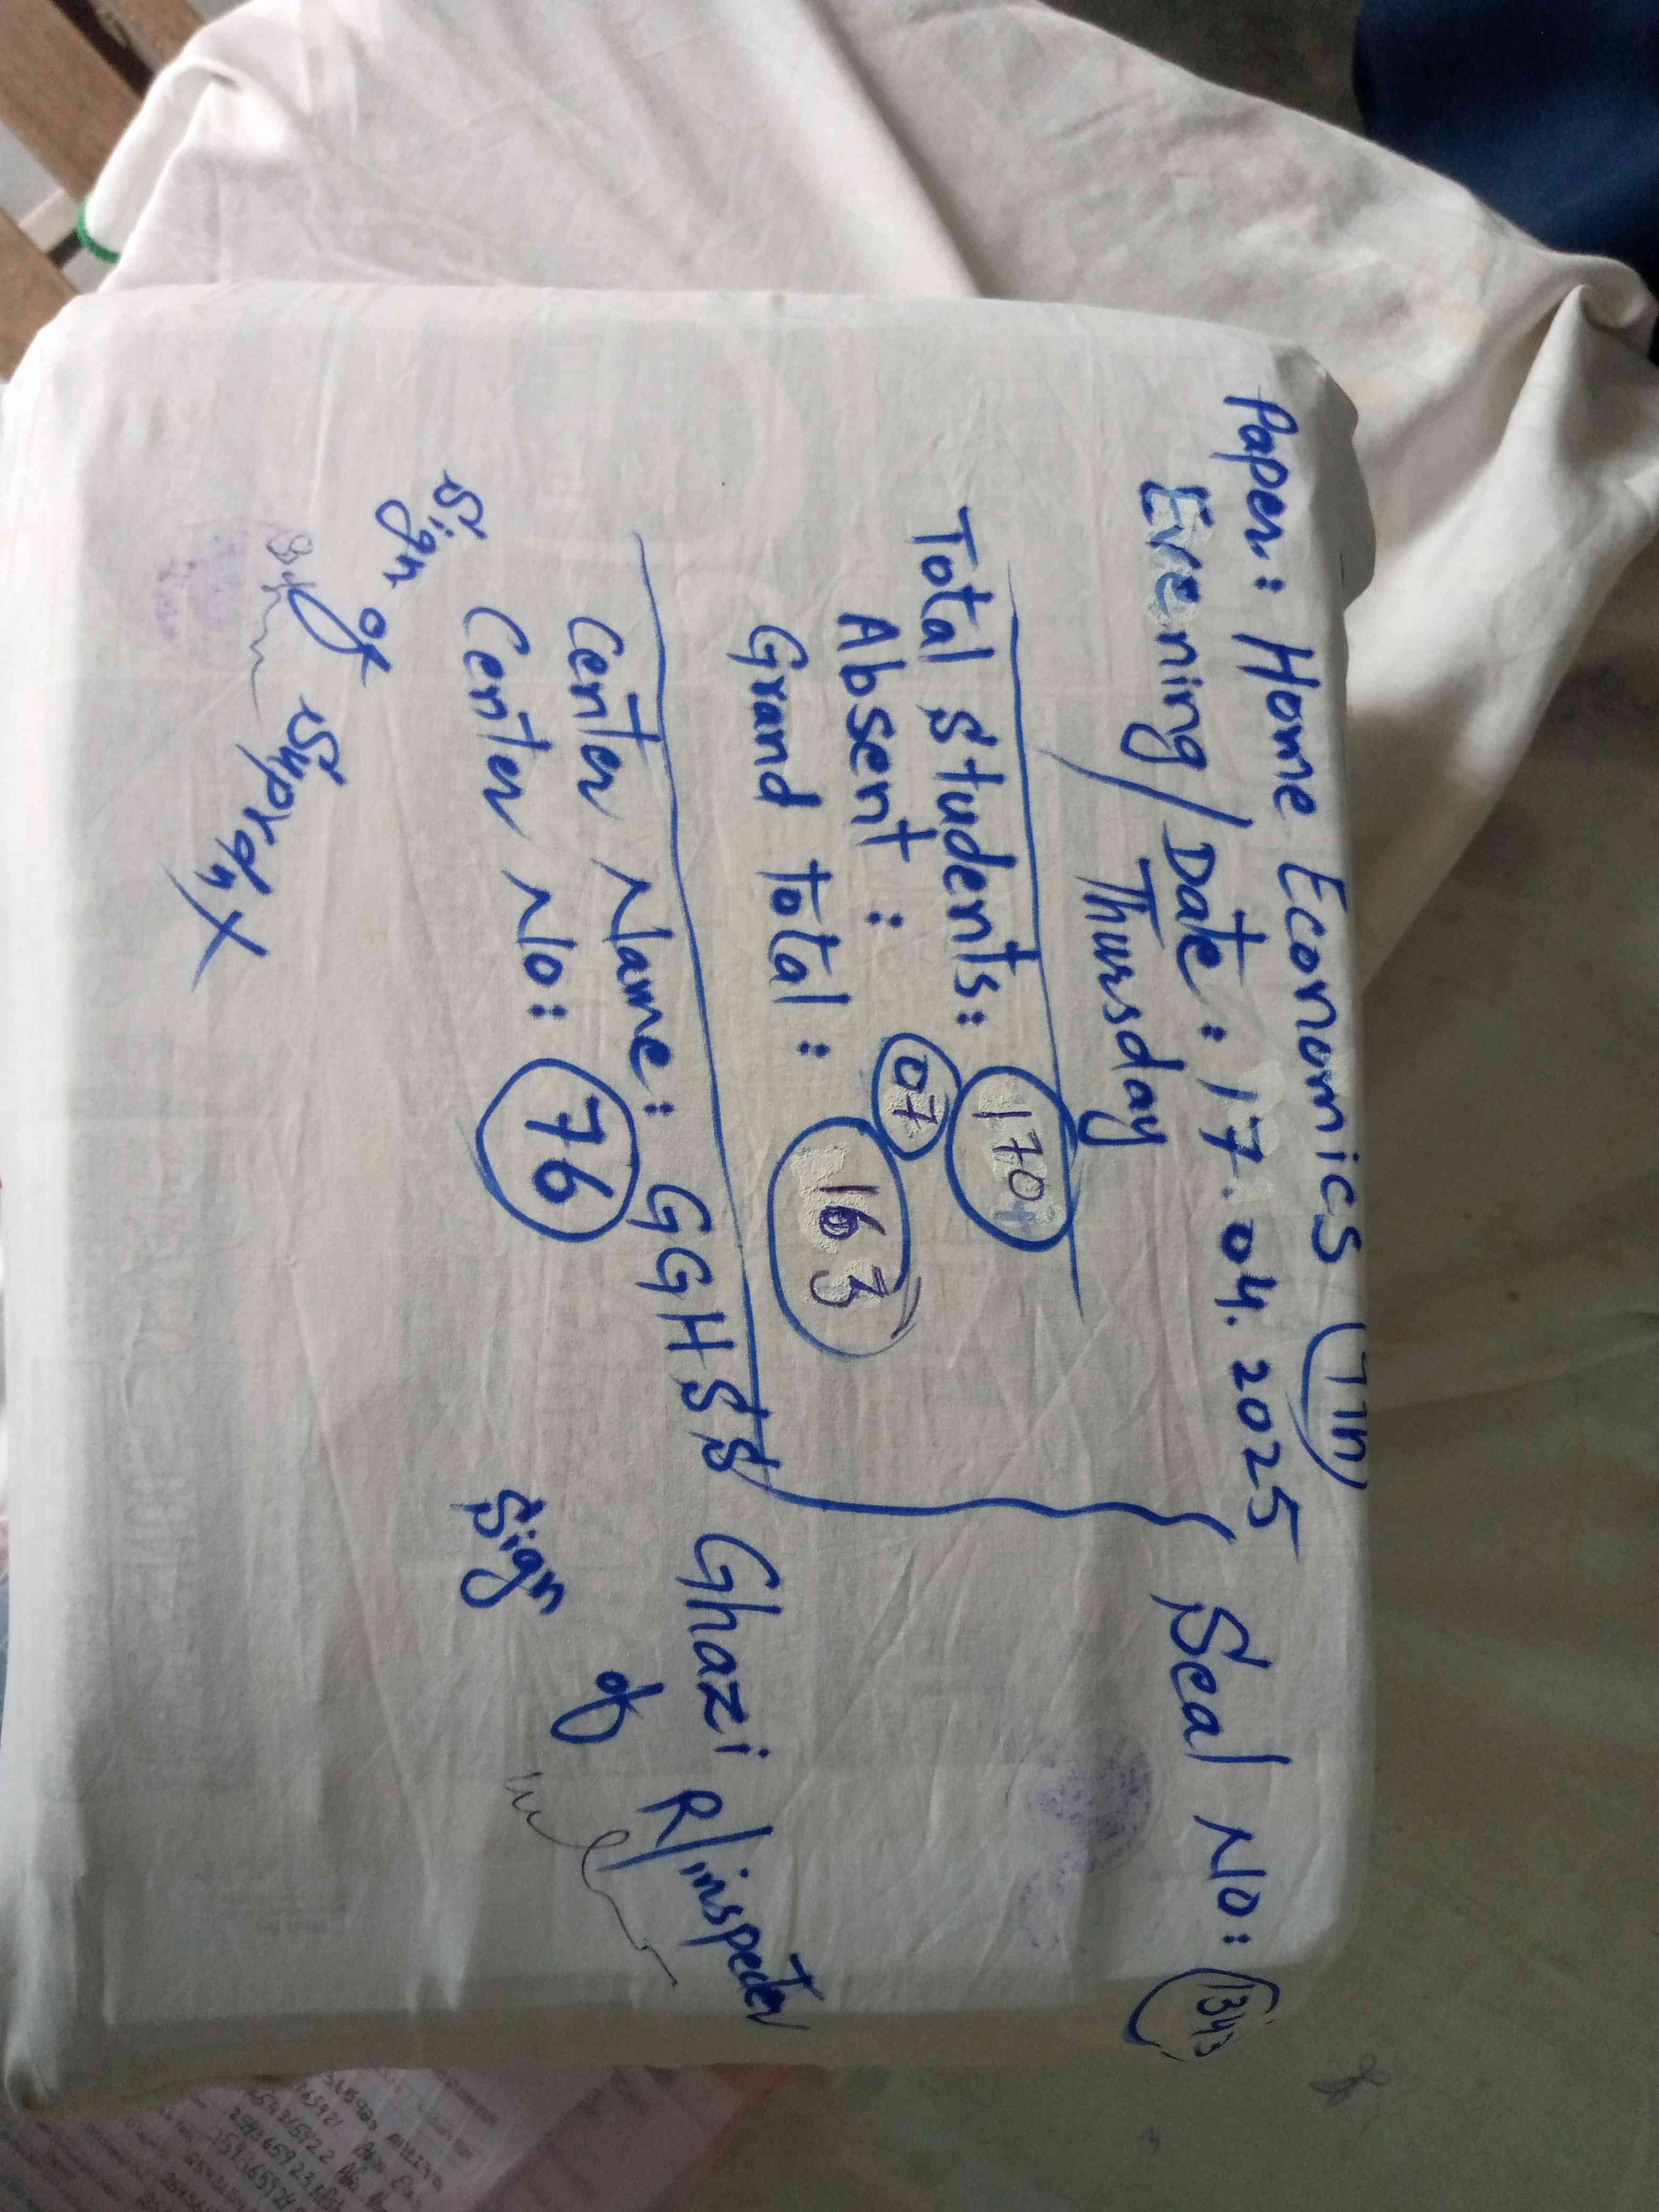 Paper: Home Economics
Evening / Date: 17.04.2025
Thursday
Seal No:
Total Students: 170
Absent : 07
Grand Total : 163
Center Name: GGHSS Ghazi
Center No: 76
Sign of Suprdnt
Sign of R/inspecter